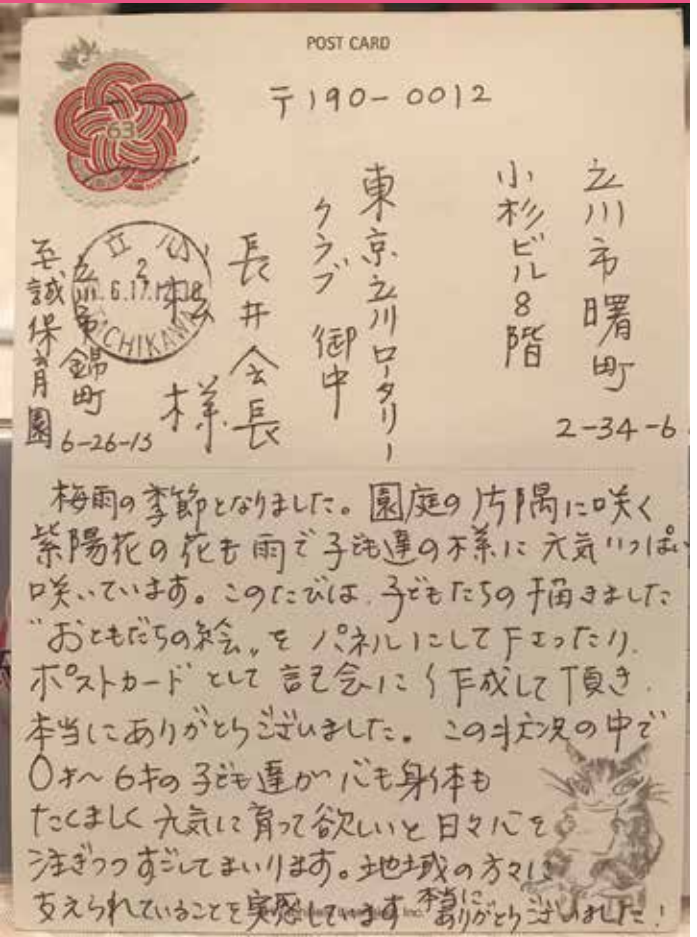 POST CARD
63
〒190-0012
立川市曙町
2-34-6
小杉ビル8階
東京立川ロータリー
クラブ 御中
長井会長
様
立川
2. 6.17.12-18
TACHIKAWA
立川市錦町
6-26-15
至誠保育園
梅雨の季節となりました。園庭の片隅に咲く
紫陽花の花も雨で子ども達の様に元気いっぱい
咲いています。このたびは、子どもたちの描きました
“おともだちの絵„をパネルにして下さったり、
ポストカードとして記念に作成して頂き、
本当にありがとうございました。この状況の中で
0才〜6才の子ども達が心も身体も
たくましく元気に育って欲しいと日々心を
注ぎつつすごしてまいります。地域の方々に
支えられていることを実感しています 本当に
ありがとうございました!
Inc.